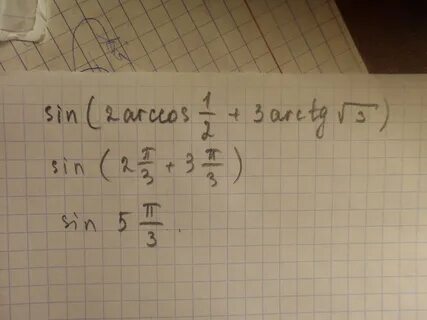 sin(2arccos 1/2 + 3arctg √3)
sin (2 π/3 + 3 π/3)
sin 5 π/3.